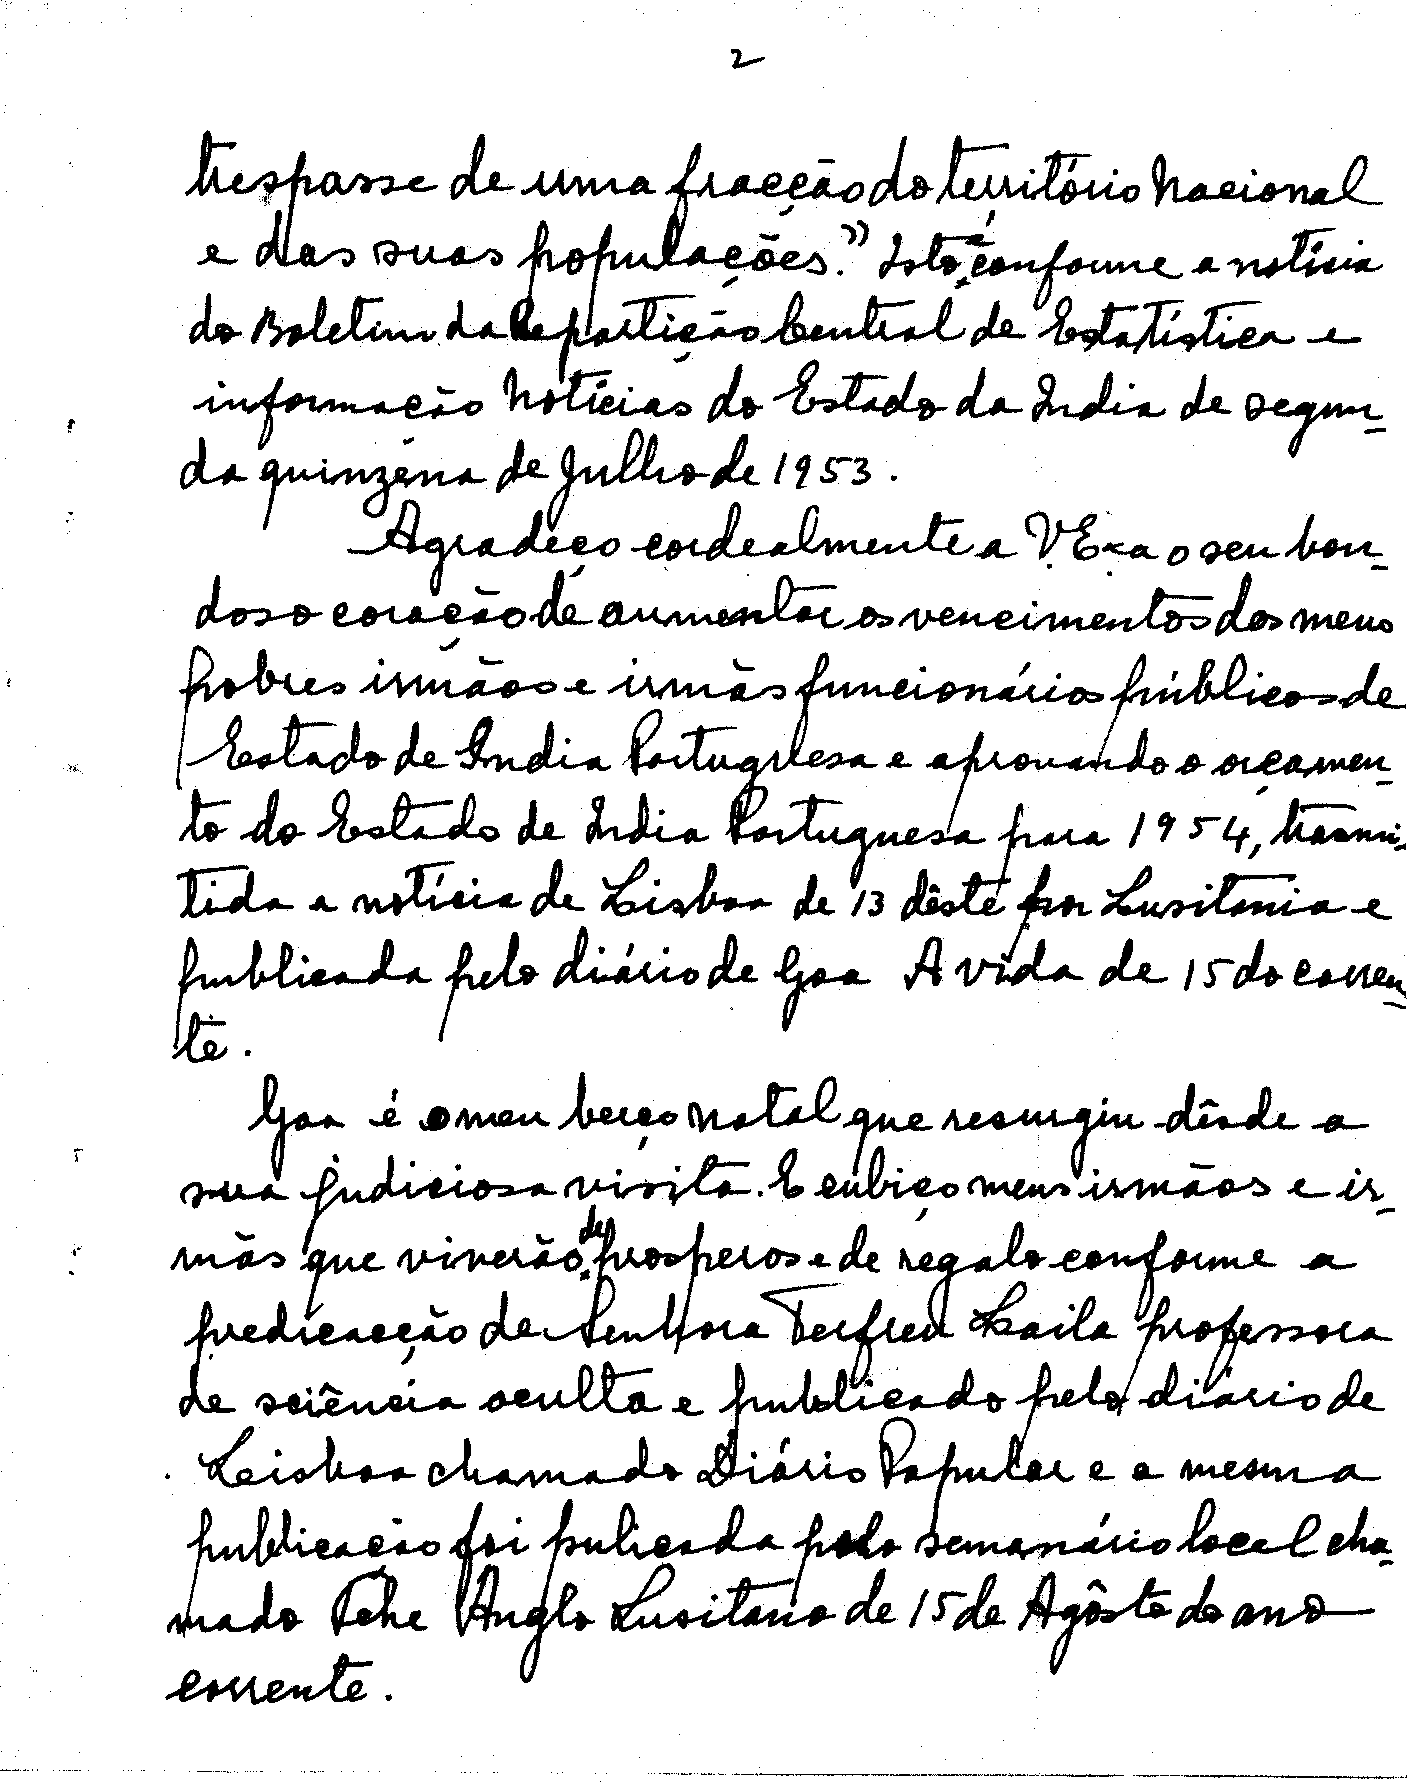 2
trespasse de uma fracção do território nacional
e das suas populações." Isto é conforme a notísia
do Boletim da Repartição Central de Estatística e
informação Notícias do Estado da India de segun-
da quinzena de Julho de 1953.
Agradeço cordealmente a V. Exa o seu bon-
doso coração de aumentar os vencimentos dos meus
pobres irmãos e irmãs funcionários públicos de
Estado de India Portuguesa e aprovando o orçamen-
to do Estado de India Portuguesa para 1954, transmi-
tida a notícia de Lisboa de 13 dêste por Lusitania e
publicada pelo diário de Goa A vida de 15 do corren-
te.
Goa é o meu berço natal que resurgiu dêsde a
sua judiciosa visita. E cubiço meus irmãos e ir-
mãs que viverão de prosperos e de regalo conforme a
predicacção de Senhora Terfren Laila professora
de sciência oculta e publicado pelo diário de
Lisboa chamado Diário Popular e a mesma
publicação foi pulicada pelo semanário local cha-
mado Tehe Anglo Lusitano de 15 de Agôsto do ano
corrente.